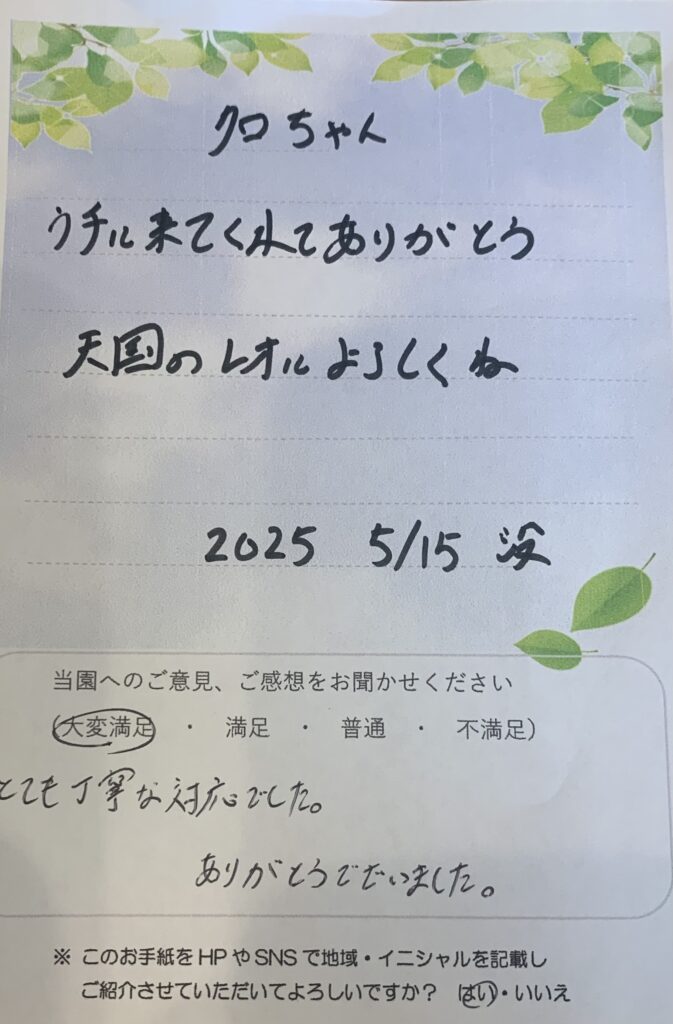 クロちゃん
ウチに来てくれてありがとう
天国のレオによろしくね
2025 5/15 没
当園へのご意見、ご感想をお聞かせください
(大変満足 ・ 満足 ・ 普通 ・ 不満足)
とても丁寧な対応でした。
ありがとうございました。
※ このお手紙をHPやSNSで地域・イニシャルを記載し
ご紹介させていただいてよろしいですか? はい・いいえ